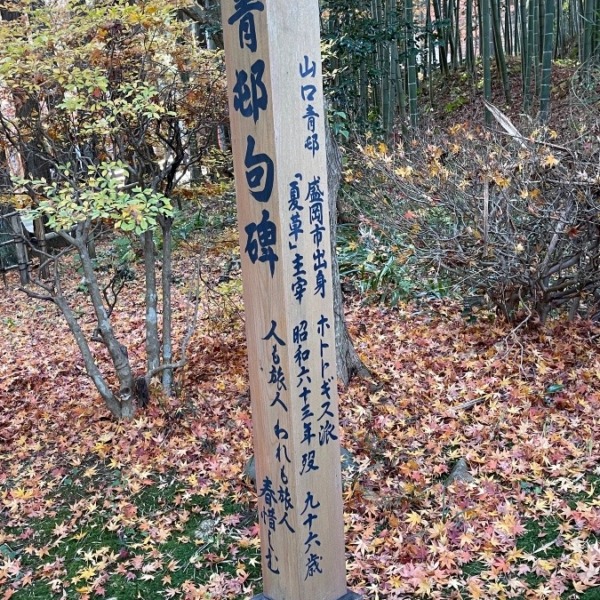 青邨句碑
山口青邨 盛岡市出身 ホトトギス派
「夏草」主宰 昭和六十三年没 九十六歳
人も旅人 われも旅人 春惜しむ